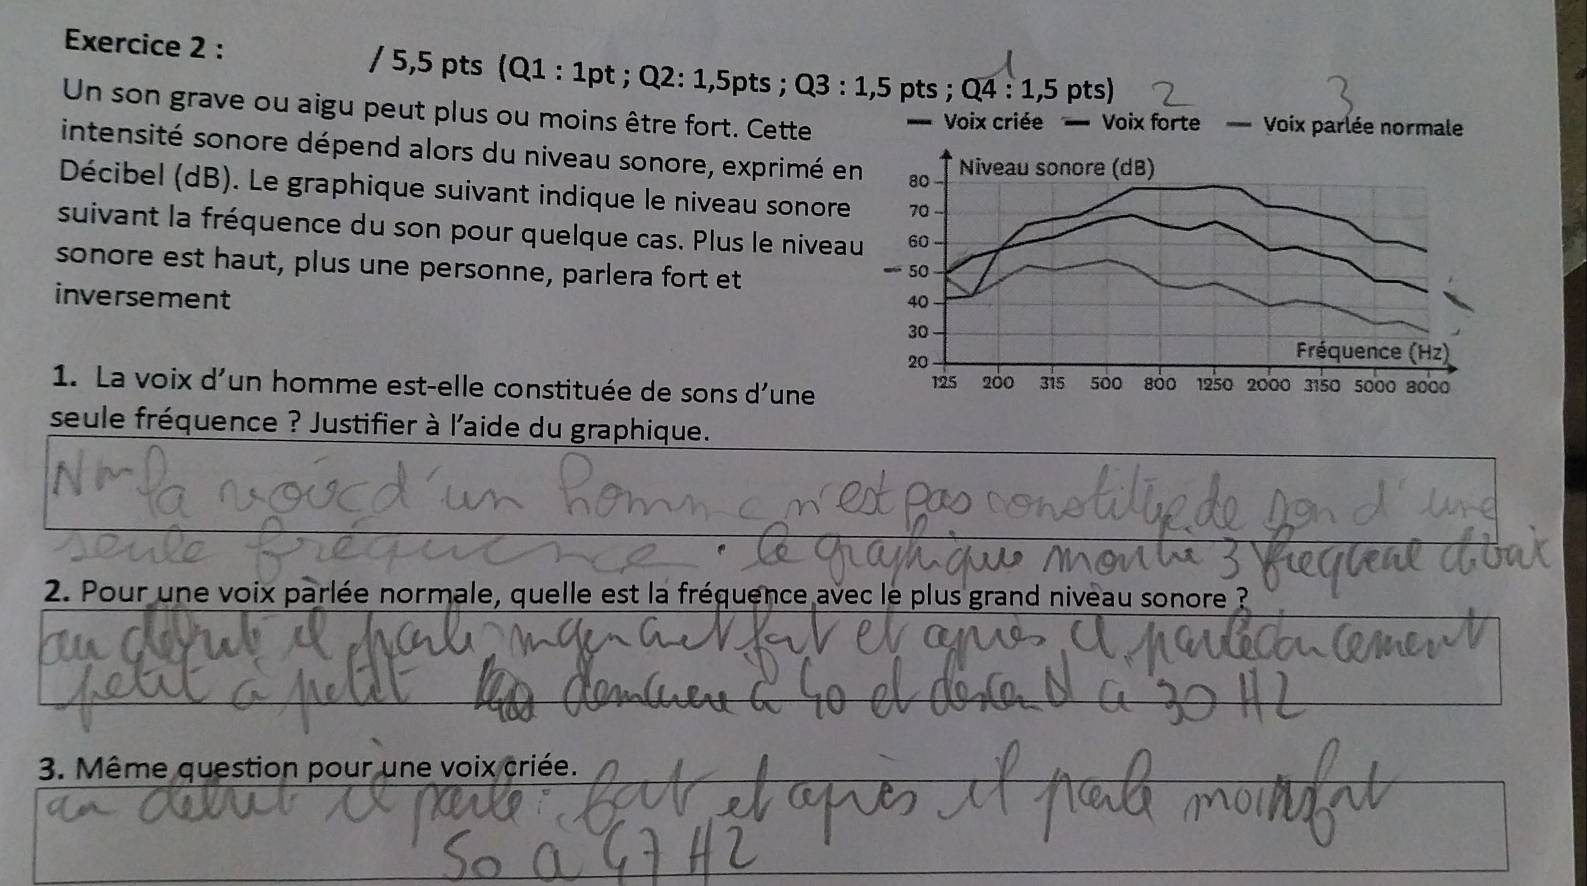 Exercice 2 : / 5,5 pts (Q1 : 1pt ; Q2: 1,5pts ; Q3 : 1,5 pts ; Q4 : 1,5 pts)
1 2 3
Un son grave ou aigu peut plus ou moins être fort. Cette
intensité sonore dépend alors du niveau sonore, exprimé en
Décibel (dB). Le graphique suivant indique le niveau sonore
suivant la fréquence du son pour quelque cas. Plus le niveau
sonore est haut, plus une personne, parlera fort et
inversement
Voix criée Voix forte Voix parlée normale
Niveau sonore (dB)
80
70
60
50
40
30
20
Fréquence (Hz)
125 200 315 500 800 1250 2000 3150 5000 8000
1. La voix d'un homme est-elle constituée de sons d'une
seule fréquence ? Justifier à l'aide du graphique.
la d'un homme n'est pas de d'une
seule frequence. le graphique montre 3
2. Pour une voix parlée normale, quelle est la fréquence avec le plus grand niveau sonore ?
au debut il parle fort et après il
petit à petit à 40 et descend a 30 HZ
3. Même question pour une voix criée.
au debut il parle fort et après il parle moins fort
50 a 47 HZ